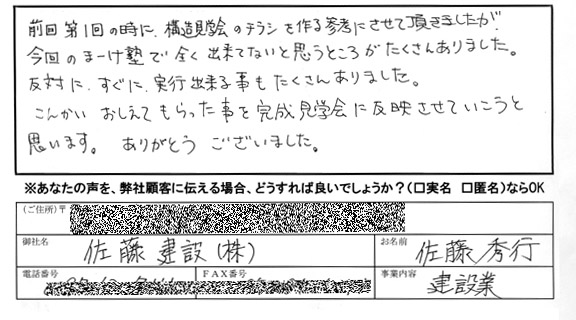 前回第1回の時に、構造見学会のチラシを作る参考にさせて頂きましたが、
今回のまーけ塾で全く出来てないと思うところがたくさんありました。
反対に、すぐに、実行出来る事もたくさんありました。
こんかい おしえてもらった事を完成見学会に反映させていこうと
思います。 ありがとう ございました。
※あなたの声を、弊社顧客に伝える場合、どうすれば良いでしょうか？(口実名 口匿名)ならOK
(ご住所)〒
御社名 佐藤建設(株) お名前 佐藤秀行
電話番号 FAX番号 事業内容 建設業